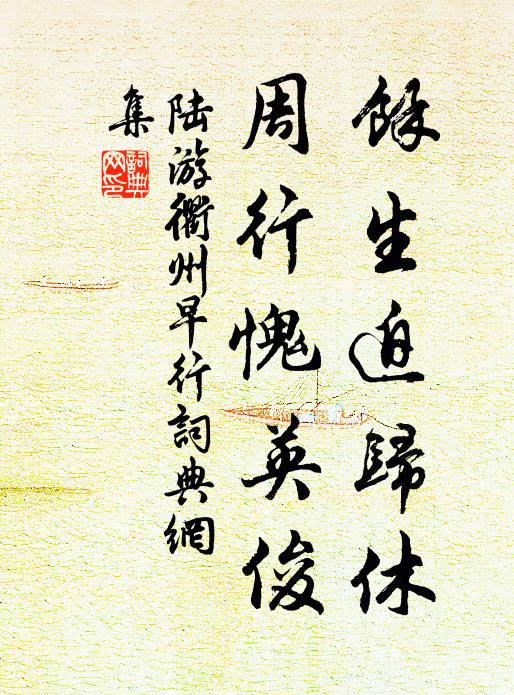 餘生迫歸休
周行愧英俊
陆游衢州早行詞典網
集
詞典
网印